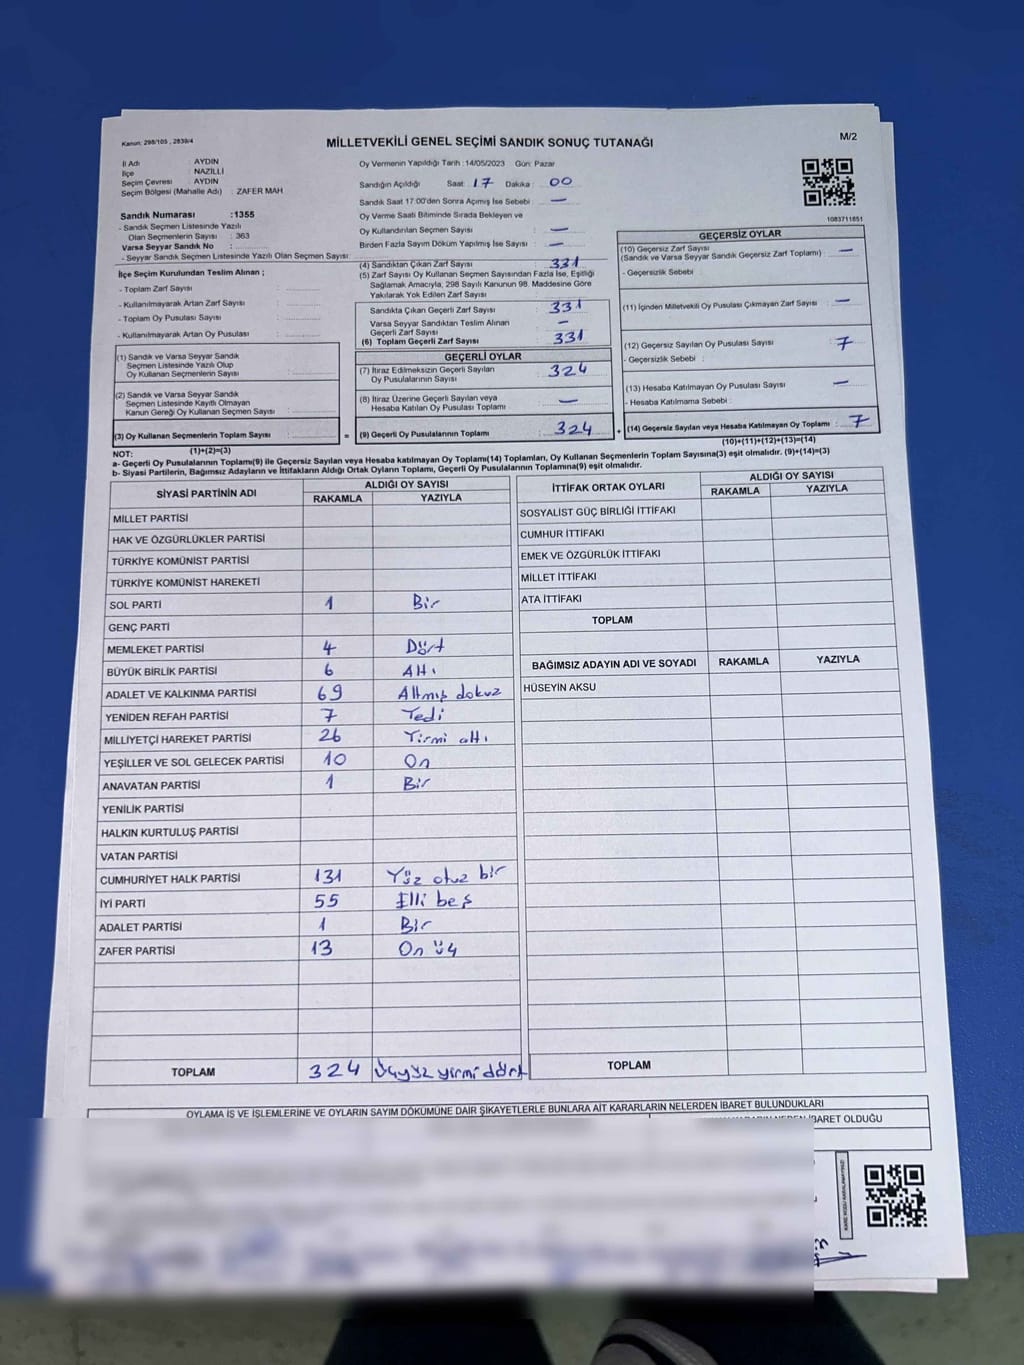 Kanun: 298/105 , 2839/4
MİLLETVEKİLİ GENEL SEÇİMİ SANDIK SONUÇ TUTANAĞI
M/2
İl Adı : AYDIN
İlçe : NAZİLLİ
Seçim Çevresi : AYDIN
Seçim Bölgesi (Mahalle Adı) : ZAFER MAH
Sandık Numarası :1355
- Sandık Seçmen Listesinde Yazılı
Olan Seçmenlerin Sayısı : 363
Varsa Seyyar Sandık No :
- Seyyar Sandık Seçmen Listesinde Yazılı Olan Seçmen Sayısı:
Oy Vermenin Yapıldığı Tarih :14/05/2023 Gün: Pazar
Sandığın Açıldığı Saat: 17 Dakika : 00
Sandık Saat 17:00'den Sonra Açılmış İse Sebebi : —
Oy Verme Saati Bitiminde Sırada Bekleyen ve
Oy Kullandırılan Seçmen Sayısı : —
Birden Fazla Sayım Döküm Yapılmış İse Sayısı : —
1083711651
İlçe Seçim Kurulundan Teslim Alınan ;
- Toplam Zarf Sayısı :
- Kullanılmayarak Artan Zarf Sayısı :
- Toplam Oy Pusulası Sayısı :
- Kullanılmayarak Artan Oy Pusulası :
(1) Sandık ve Varsa Seyyar Sandık
Seçmen Listesinde Yazılı Olup
Oy Kullanan Seçmenlerin Sayısı :
(2) Sandık ve Varsa Seyyar Sandık
Seçmen Listesinde Kayıtlı Olmayan
Kanun Gereği Oy Kullanan Seçmen Sayısı :
(3) Oy Kullanan Seçmenlerin Toplam Sayısı :
(1)+(2)=(3)
(4) Sandıktan Çıkan Zarf Sayısı : 331
(5) Zarf Sayısı Oy Kullanan Seçmen Sayısından Fazla İse, Eşitliği
Sağlamak Amacıyla, 298 Sayılı Kanunun 98. Maddesine Göre
Yakılarak Yok Edilen Zarf Sayısı :
Sandıkta Çıkan Geçerli Zarf Sayısı : 331
Varsa Seyyar Sandıktan Teslim Alınan
Geçerli Zarf Sayısı : —
(6) Toplam Geçerli Zarf Sayısı : 331
GEÇERLİ OYLAR
(7) İtiraz Edilmeksizin Geçerli Sayılan
Oy Pusulalarının Sayısı : 324
(8) İtiraz Üzerine Geçerli Sayılan veya
Hesaba Katılan Oy Pusulası Toplamı : —
= (9) Geçerli Oy Pusulalarının Toplamı : 324 +
GEÇERSİZ OYLAR
(10) Geçersiz Zarf Sayısı
(Sandık ve Varsa Seyyar Sandık Geçersiz Zarf Toplamı) : —
- Geçersizlik Sebebi :
(11) İçinden Milletvekili Oy Pusulası Çıkmayan Zarf Sayısı : —
(12) Geçersiz Sayılan Oy Pusulası Sayısı : 7
- Geçersizlik Sebebi :
(13) Hesaba Katılmayan Oy Pusulası Sayısı : —
- Hesaba Katılmama Sebebi :
(14) Geçersiz Sayılan veya Hesaba Katılmayan Oy Toplamı : 7
(10)+(11)+(12)+(13)=(14)
NOT:
a- Geçerli Oy Pusulalarının Toplamı(9) ile Geçersiz Sayılan veya Hesaba katılmayan Oy Toplamı(14) Toplamları, Oy Kullanan Seçmenlerin Toplam Sayısına(3) eşit olmalıdır. (9)+(14)=(3)
b- Siyasi Partilerin, Bağımsız Adayların ve İttifakların Aldığı Ortak Oyların Toplamı, Geçerli Oy Pusulalarının Toplamına(9) eşit olmalıdır.
SİYASİ PARTİNİN ADI ALDIĞI OY SAYISI
RAKAMLA YAZIYLA
MİLLET PARTİSİ
HAK VE ÖZGÜRLÜKLER PARTİSİ
TÜRKİYE KOMÜNİST PARTİSİ
TÜRKİYE KOMÜNİST HAREKETİ
SOL PARTİ 1 Bir
GENÇ PARTİ
MEMLEKET PARTİSİ 4 Dört
BÜYÜK BİRLİK PARTİSİ 6 Altı
ADALET VE KALKINMA PARTİSİ 69 Altmış dokuz
YENİDEN REFAH PARTİSİ 7 Yedi
MİLLİYETÇİ HAREKET PARTİSİ 26 Yirmi altı
YEŞİLLER VE SOL GELECEK PARTİSİ 10 On
ANAVATAN PARTİSİ 1 Bir
YENİLİK PARTİSİ
HALKIN KURTULUŞ PARTİSİ
VATAN PARTİSİ
CUMHURİYET HALK PARTİSİ 131 Yüz otuz bir
İYİ PARTİ 55 Elli beş
ADALET PARTİSİ 1 Bir
ZAFER PARTİSİ 13 On üç
TOPLAM 324 Üçyüz yirmi dört
İTTİFAK ORTAK OYLARI ALDIĞI OY SAYISI
RAKAMLA YAZIYLA
SOSYALİST GÜÇ BİRLİĞİ İTTİFAKI
CUMHUR İTTİFAKI
EMEK VE ÖZGÜRLÜK İTTİFAKI
MİLLET İTTİFAKI
ATA İTTİFAKI
TOPLAM
BAĞIMSIZ ADAYIN ADI VE SOYADI RAKAMLA YAZIYLA
HÜSEYİN AKSU
TOPLAM
OYLAMA İŞ VE İŞLEMLERİNE VE OYLARIN SAYIM DÖKÜMÜNE DAİR ŞİKAYETLERLE BUNLARA AİT KARARLARIN NELERDEN İBARET BULUNDUKLARI
İBARET OLDUĞU